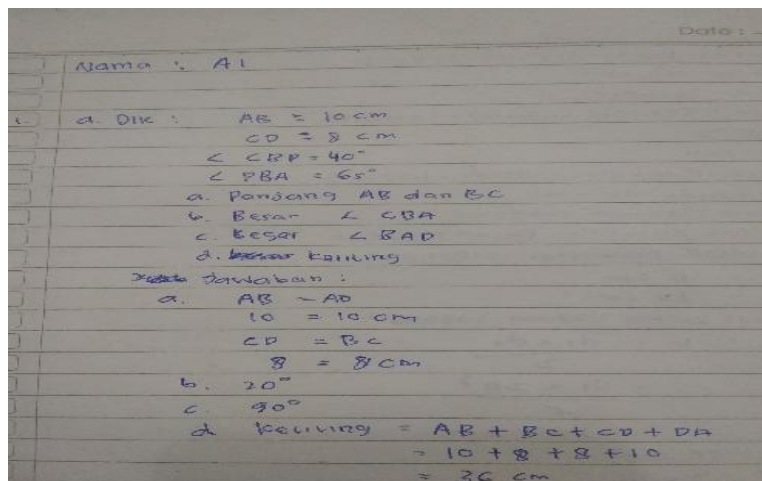 Date :
Nama : A1
1. a. Dik : AB = 10 cm
CD = 8 cm
< CBD = 40°
< DBA = 65°
a. Panjang AB dan BC
b. Besar < CBA
c. Besar < BAD
d. Keliling
Jawaban :
a. AB = AD
10 = 10 cm
CD = BC
8 = 8 cm
b. 20°
c. 90°
d Keliling = AB + BC + CD + DA
= 10 + 8 + 8 + 10
= 36 cm